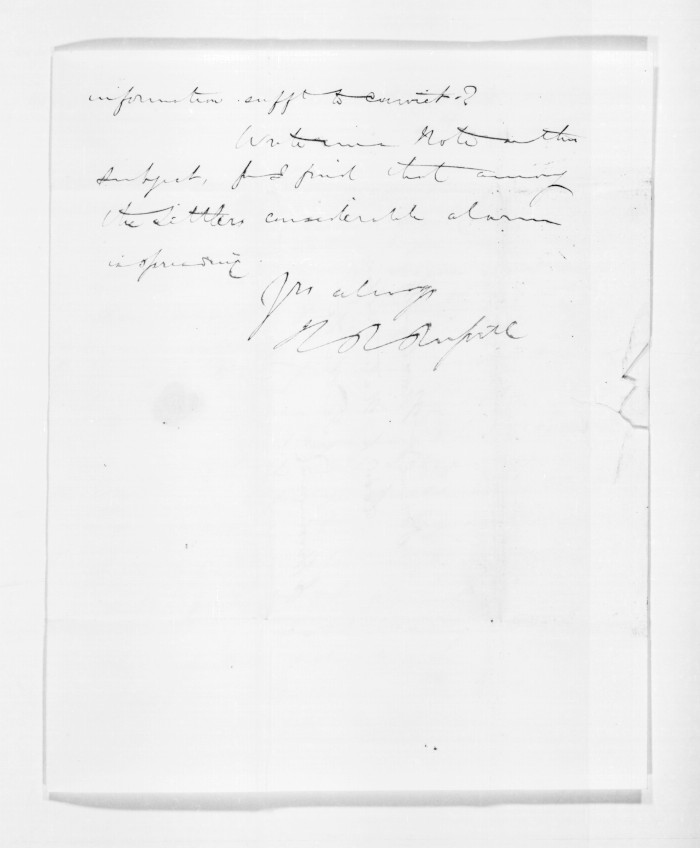 information suff<sup>t</sup> to convict?
Write me a Note on this
subject, for I find that among
the settlers considerable alarm
is spreading.
Yrs always